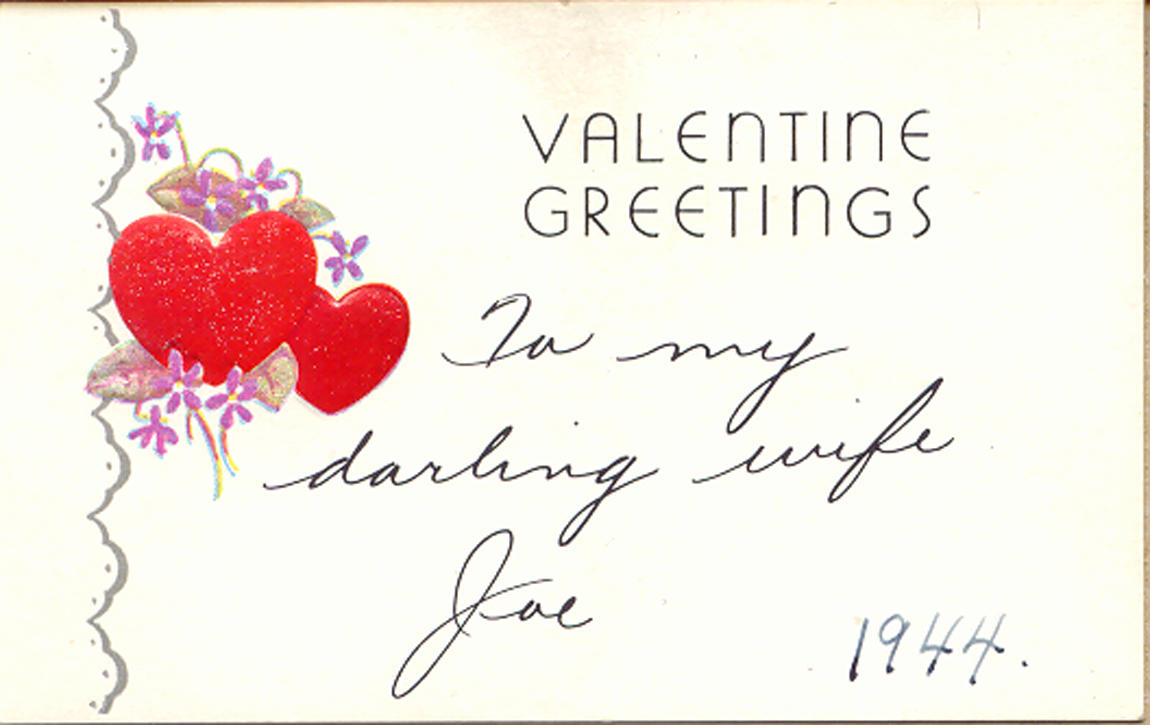 VALENTINE
GREETINGS
To my
darling wife
Joe
1944.